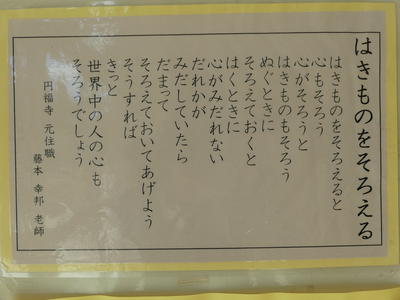 はきものをそろえる
はきものをそろえると
心もそろう
心がそろうと
はきものもそろう
ぬぐときに
そろえておくと
はくときに
心がみだれない
だれかが
みだしていたら
だまって
そろえておいてあげよう
そうすれば
きっと
世界中の人の心も
そろうでしょう
円福寺 元住職
藤本 幸邦 老師